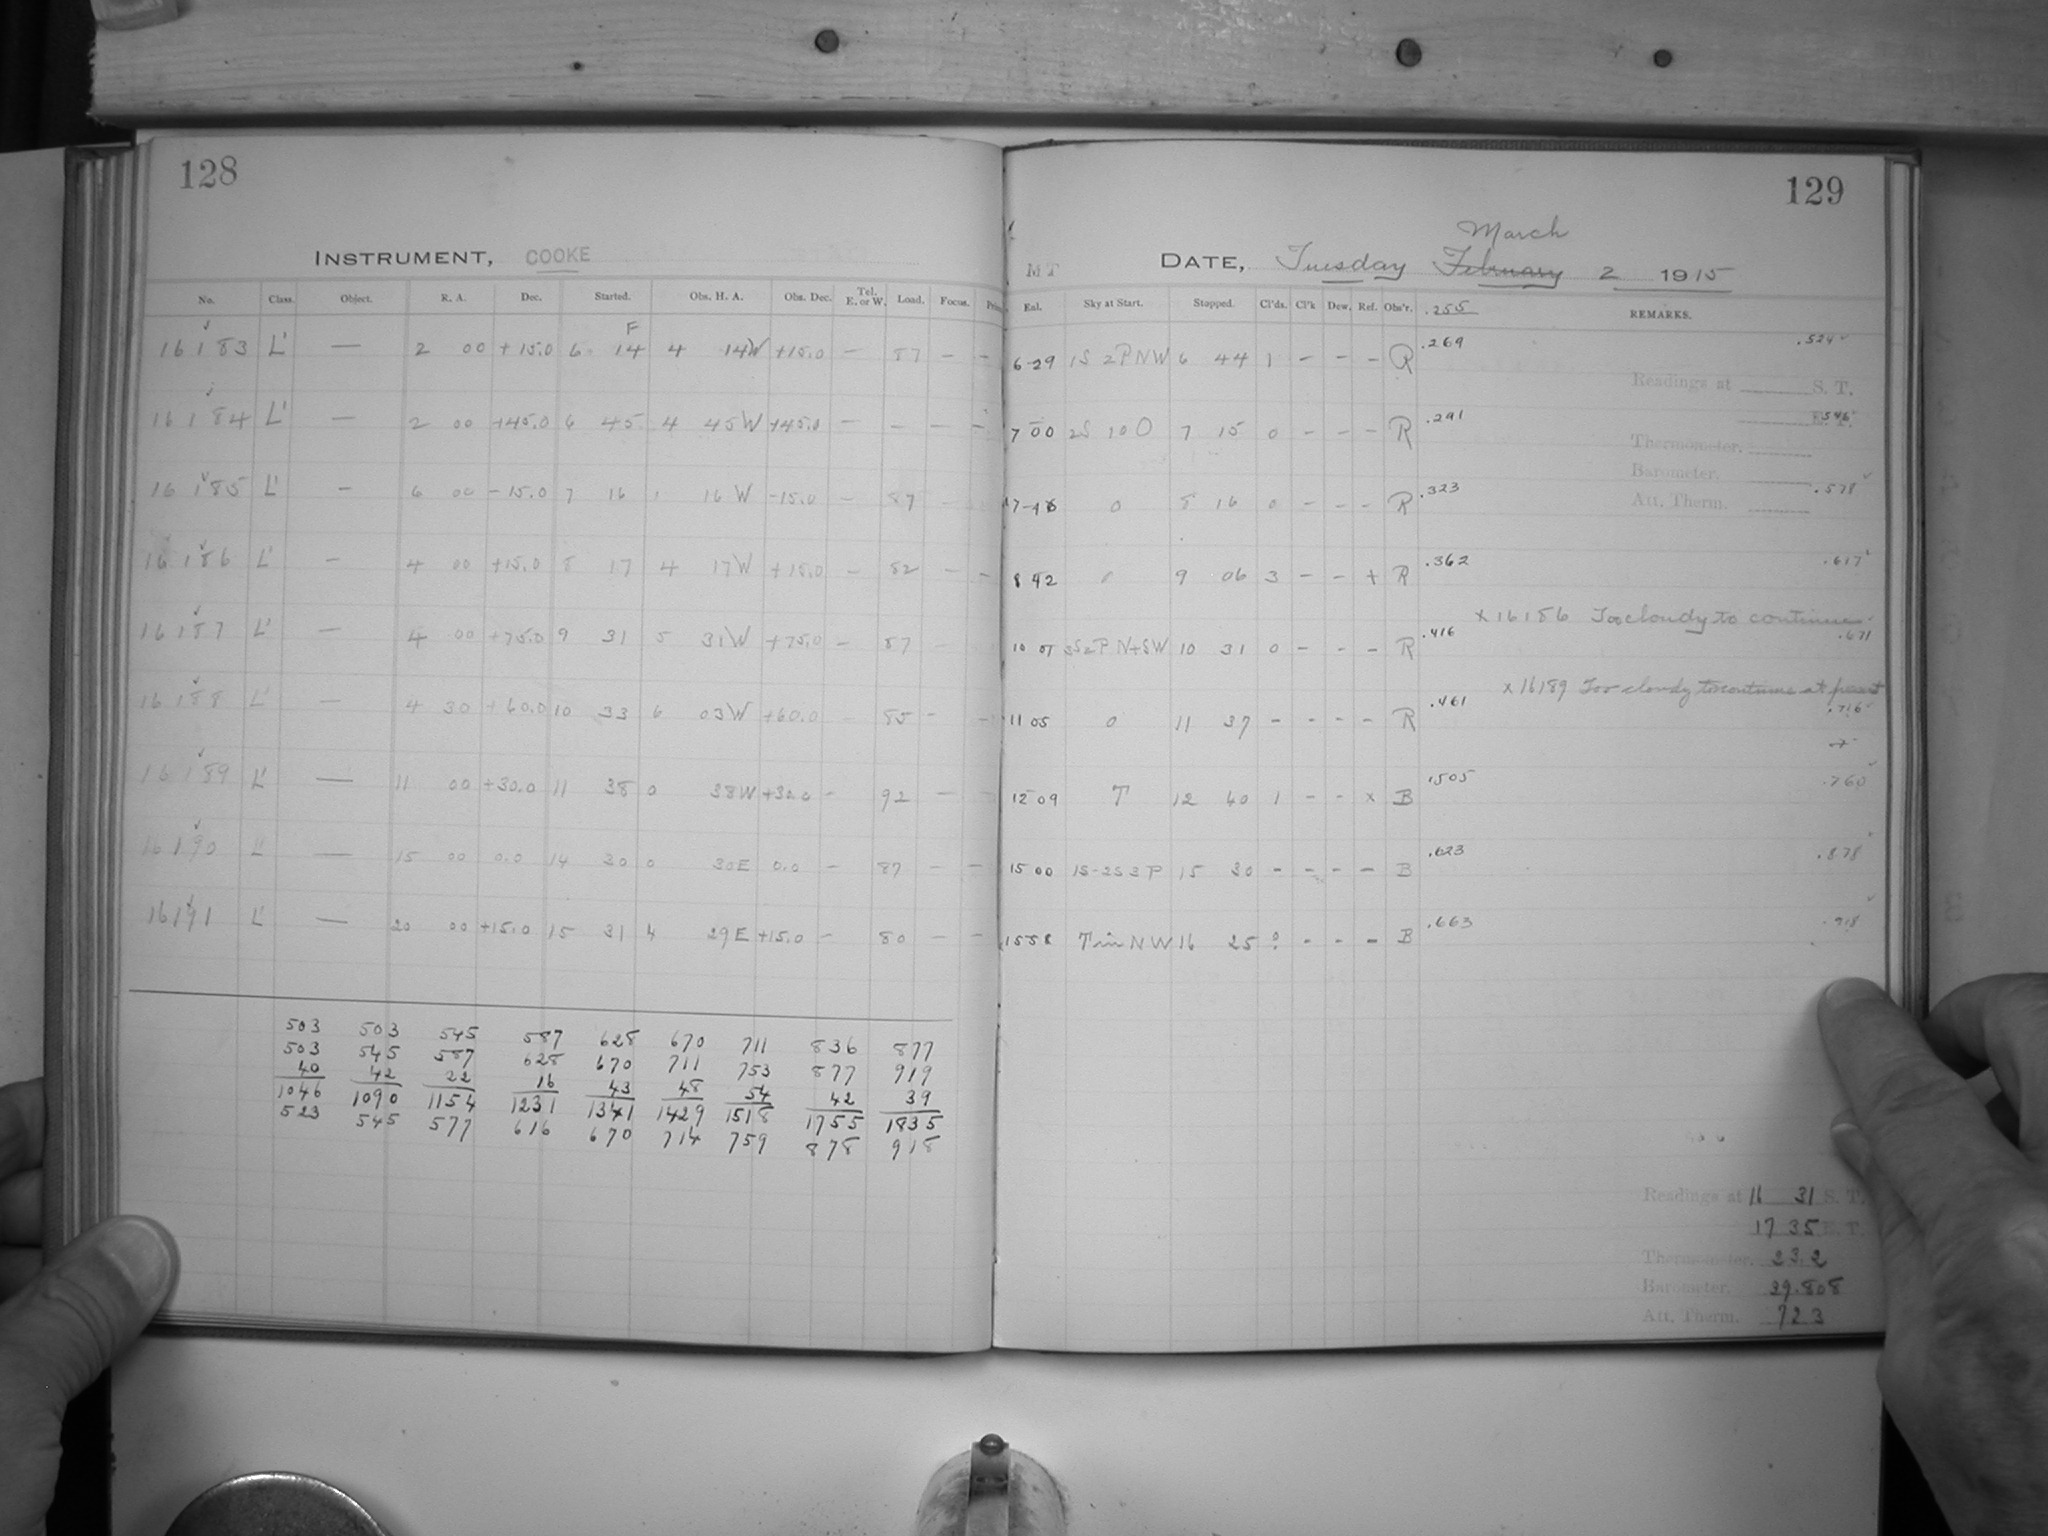 128
INSTRUMENT, COOKE
No. Class. Object. R. A. Dec. Started. Obs. H. A. Obs. Dec. Tel. E. or W. Load. Focus.
F
16183 L' — 2 00 +15.0 6 14 4 14W +15.0 — 87 — —
16184 L' — 2 00 +45.0 6 45 4 45W +45.0 — — — —
16185 L' — 6 00 -15.0 7 16 1 16W -15.0 — 87 —
16186 L' — 4 00 +15.0 8 17 4 17W +15.0 — 82 — —
16187 L' — 4 00 +75.0 9 31 5 31W +75.0 — 87 —
16188 L' — 4 30 +60.0 10 33 6 03W +60.0 — 85 — —
16189 L' — 11 00 +30.0 11 38 0 38W +30.0 — 92 — —
16190 L' — 15 00 0.0 14 30 0 30E 0.0 — 87 — —
16191 L' — 20 00 +15.0 15 31 4 29E +15.0 — 80 — —
503 503 545 587 628 670 711 836 877
503 545 587 628 670 711 753 877 919
40 42 22 16 43 48 54 42 39
1046 1090 1154 1231 1341 1429 1518 1755 1835
523 545 577 616 670 714 759 878 918
129
March
MT DATE, Tuesday February 2 1915
Eal. Sky at Start. Stopped. Cl'ds. Cl'k Dew. Ref. Obs'r. .255 REMARKS.
6-29 1S 2P NW 6 44 1 — — — R .269 .524
Readings at S. T.
7 00 2S 10 0 7 15 0 — — — R .291 .546
E. T.
Thermometer.
Barometer.
0 8 16 0 — — — R .323 .578
Att. Therm.
8 42 0 9 06 3 — — + R .362 .617
x 16186 Too cloudy to continue
3S2P N+SW 10 31 0 — — — R .416 .671
x 16189 Too cloudy to continue at present
11 05 0 11 37 — — — — R .461 .716
12 09 T 12 40 1 — — x B .505 .760
15 00 1S-2S3P 15 30 — — — — B .623 .878
1558 T in NW 16 25 ? — — — B .663 .918
Readings at 16 31 S. T.
17 35 E. T.
Thermometer. 23.2
Barometer. 39.808
Att. Therm. 723